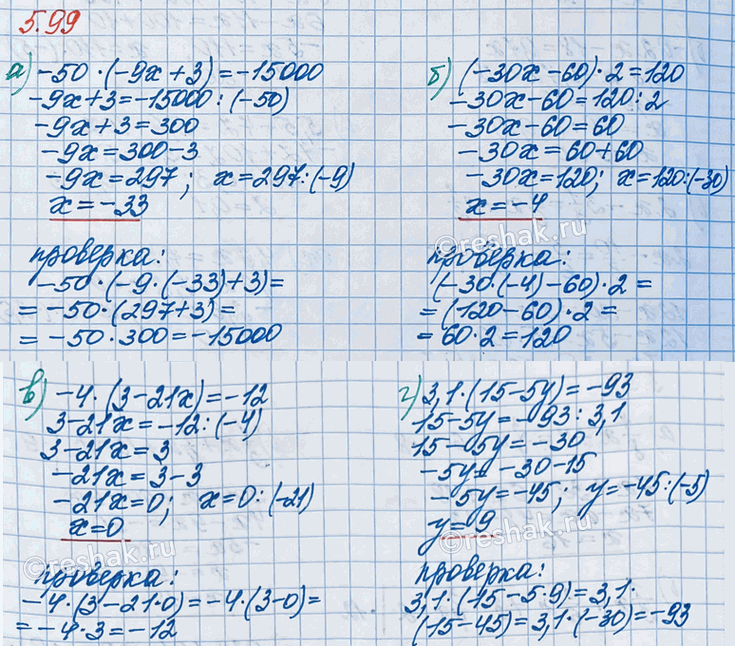 5.99
а) -50·(-9x+3)=-15000
-9x+3=-15000:(-50)
-9x+3=300
-9x=300-3
-9x=297; x=297:(-9)
x=-33
проверка:
-50·(-9·(-33)+3)=
=-50·(297+3)=
=-50·300=-15000
б) (-30x-60)·2=120
-30x-60=120:2
-30x-60=60
-30x=60+60
-30x=120; x=120:(-30)
x=-4
©reshak.ru
проверка:
(-30·(-4)-60)·2=
=(120-60)·2=
=60·2=120
в) -4·(3-21x)=-12
3-21x=-12:(-4)
3-21x=3
-21x=3-3
-21x=0; x=0:(-21)
x=0
©reshak.ru
проверка:
-4·(3-21·0)=-4·(3-0)=
=-4·3=-12
г) 3,1·(15-5y)=-93
15-5y=-93:3,1
15-5y=-30
-5y=-30-15
-5y=-45; y=-45:(-5)
y=9
©reshak.ru
проверка:
3,1·(15-5·9)=3,1·
(15-45)=3,1·(-30)=-93